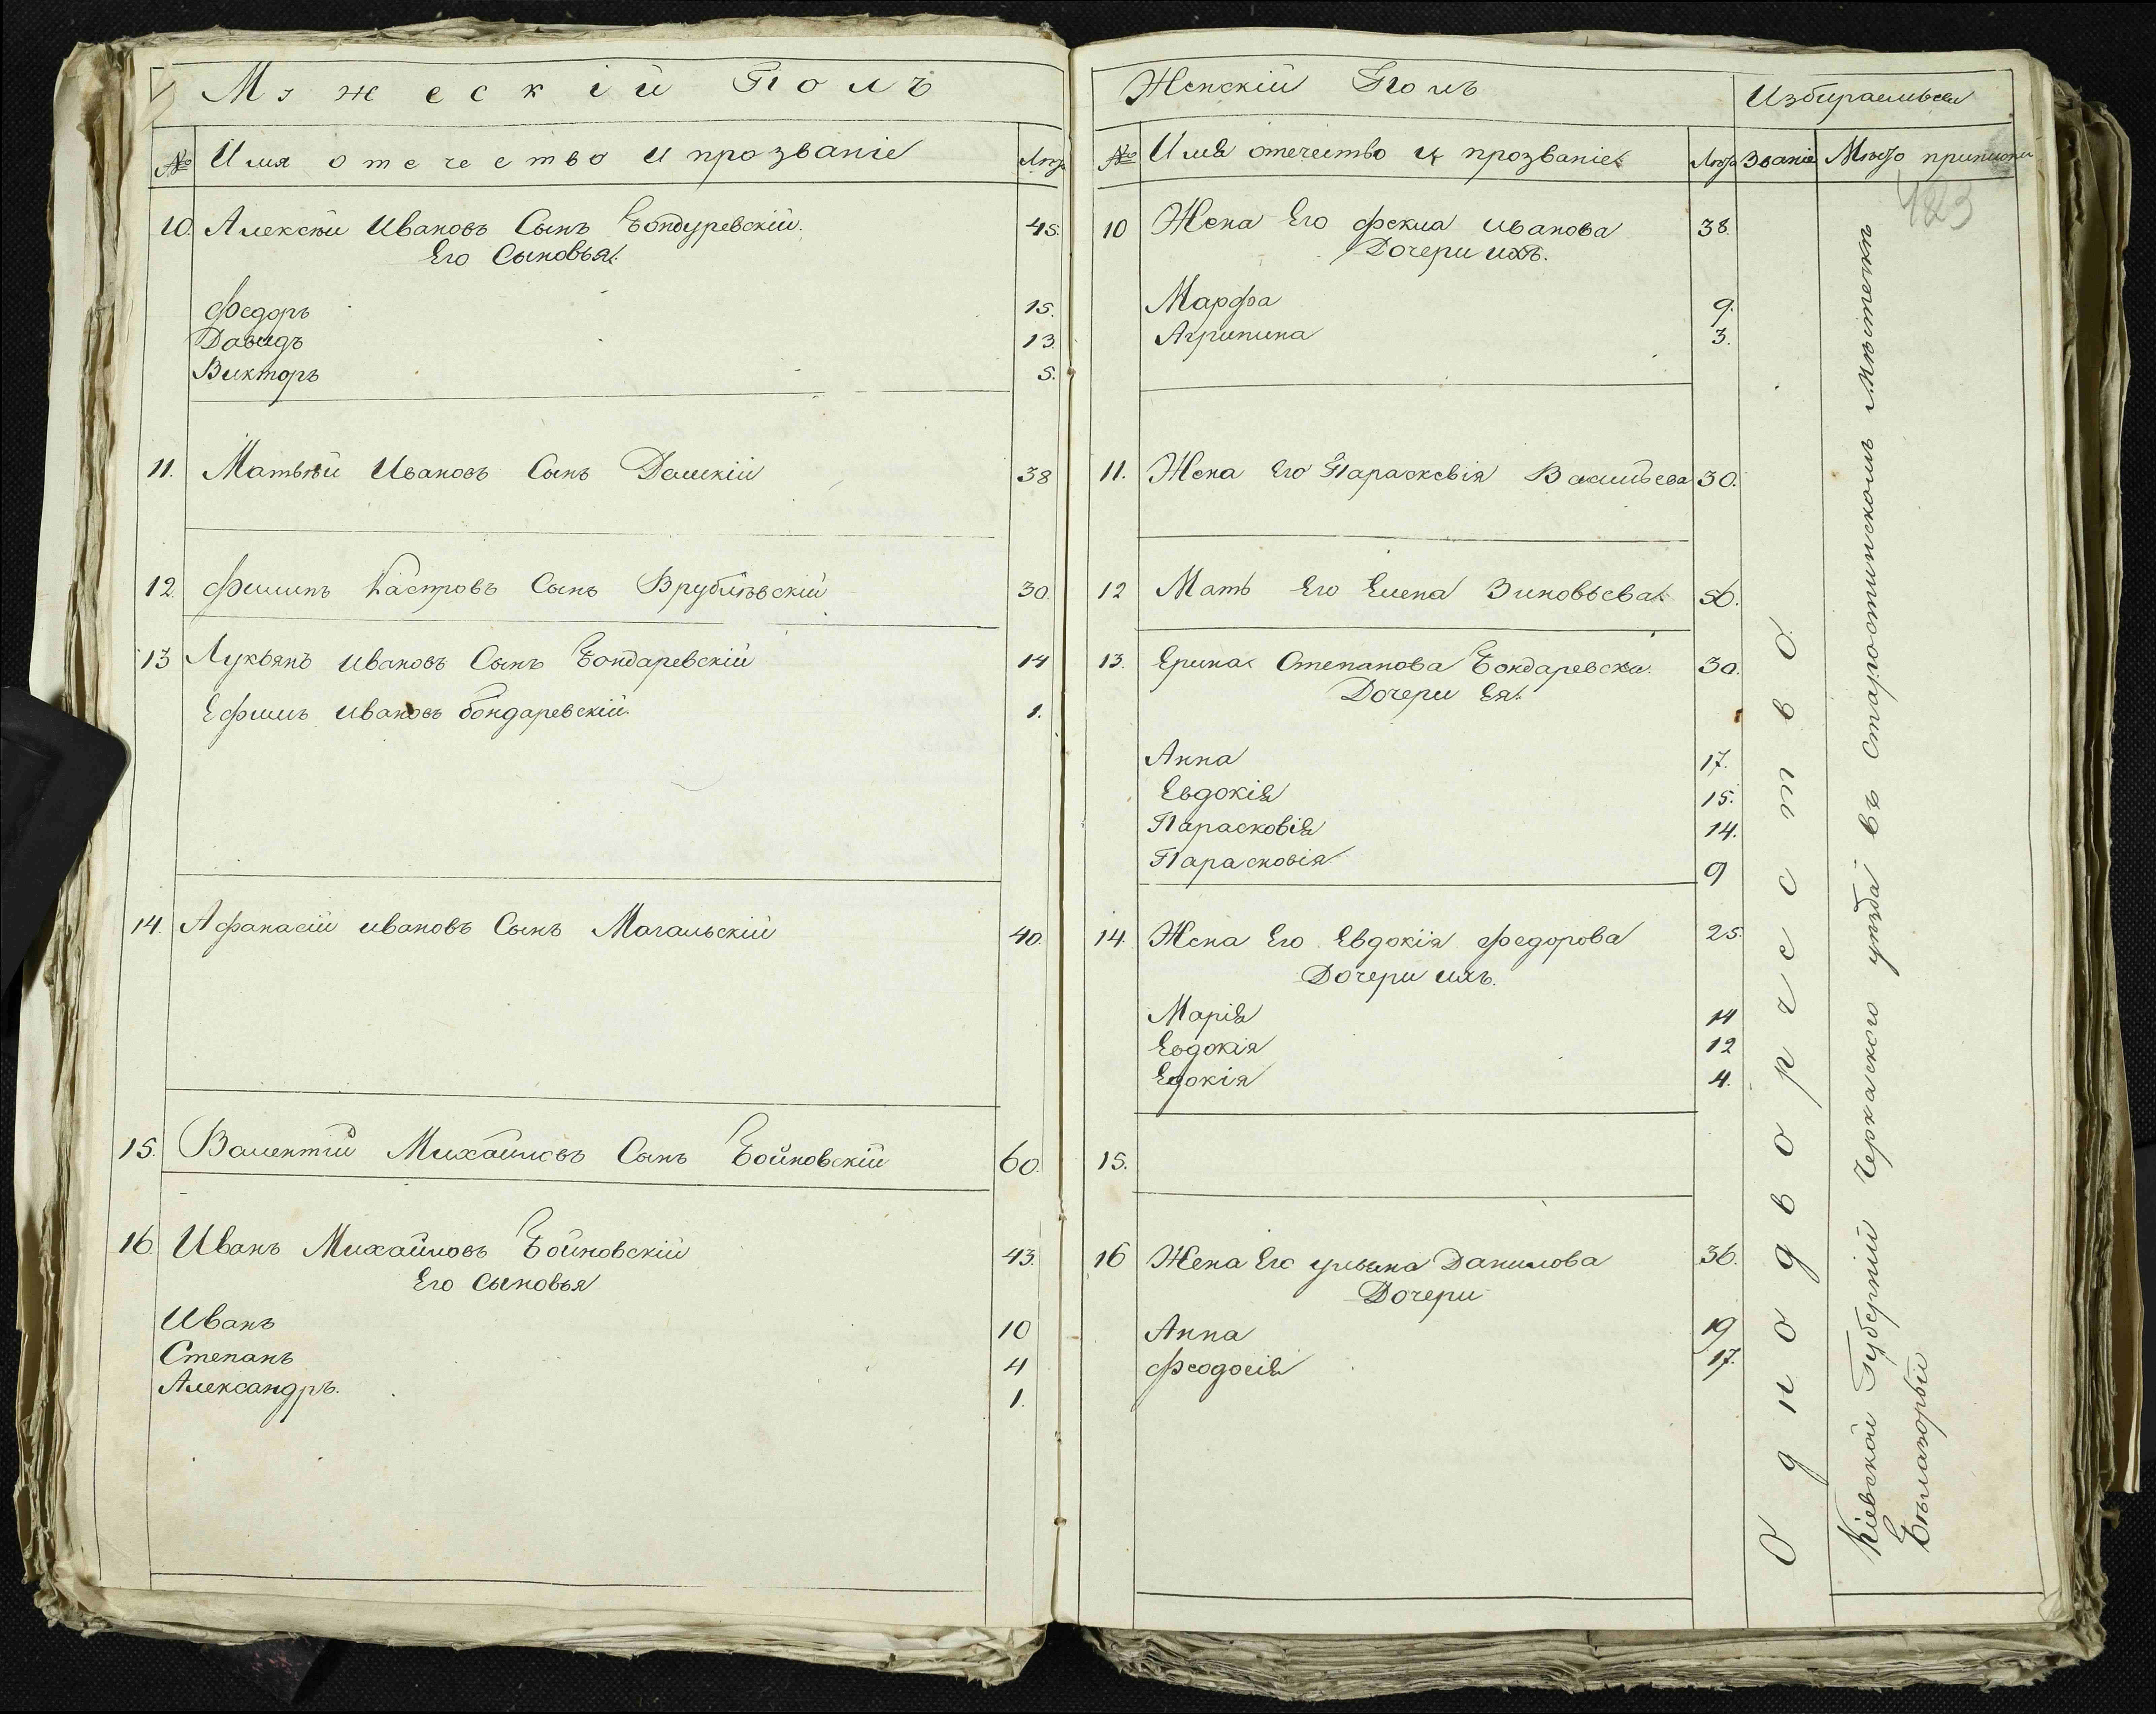 Мужескій Полъ
№ Имя отечество и прозваніе Лѣт
10. Алексѣй Ивановъ Сынъ Бондуревскій. 45.
Его Сыновья.
Федоръ 15.
Давидъ 13.
Викторъ 5.
11. Матвѣй Ивановъ Сынъ Дашкій 38
12. Филипъ Кастровъ Сынъ Врублѣвскій 30
13 Лукьянъ Ивановъ Сынъ Бондаревскій 14
Ефимъ Ивановъ бондаревскій. 1.
14. Афанасій Ивановъ Сынъ Магальскій 40.
15. Валентій Михайловъ Сынъ Бойновскій 60.
16 Иванъ Михайловъ Бойновскій 43.
Его Сыновья
Иванъ 10
Степанъ 4
Александръ. 1.
Женскій Полъ
Избираемыхъ
№ Имя отечество и прозваніе Лѣт Званіе Мѣсто приписки
423
10 Жена Его Фекла Иванова 38.
Дочери ихъ.
Марфа 9.
Агрипина 3.
11. Жена Его Параскевія Васильева 30.
12 Мать Его Елена Зиновьева 56.
13. Ерина Степанова Бондаревска. 30.
Дочери Ея.
Анна 17.
Евдокія 15.
Парасковія 14.
Парасковія 9
14. Жена Его Евдокія Федорова 25.
Дочери ихъ.
Марія 14
Евдокія 12
Едокія 4.
15.
16 Жена Его ульяна Данилова 36.
Дочери
Анна 19
Феодосія 17.
Однодворчество.
Кіевской Губерніи Черкаского уѣзда въ Старостинскомъ Мѣстечкѣ